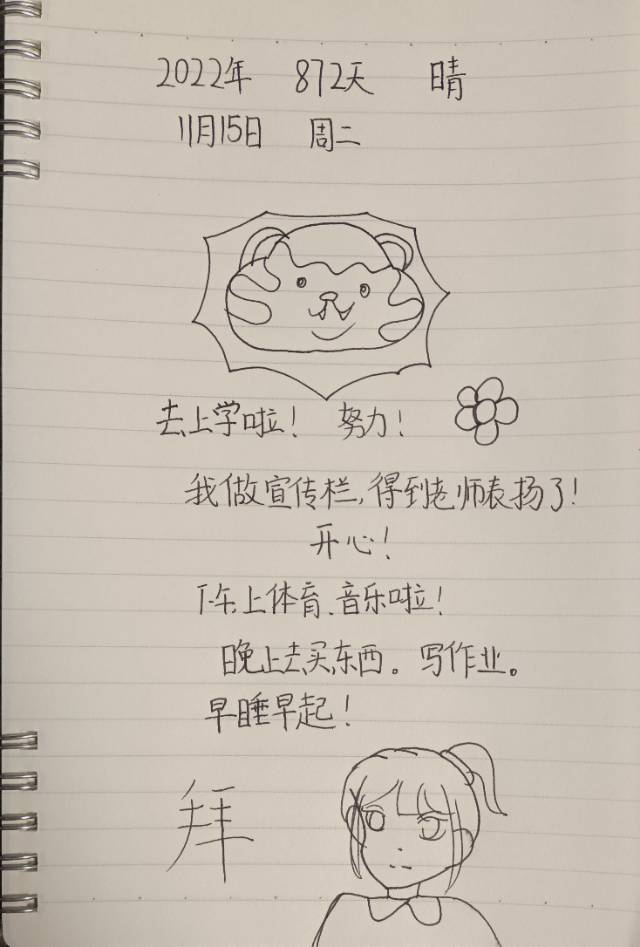 2022年 872天 晴
11月15日 周二
去上学啦! 努力!
我做宣传栏,得到老师表扬了!
开心!
下午上体育、音乐啦!
晚上去买东西。写作业。
早睡早起!
拜